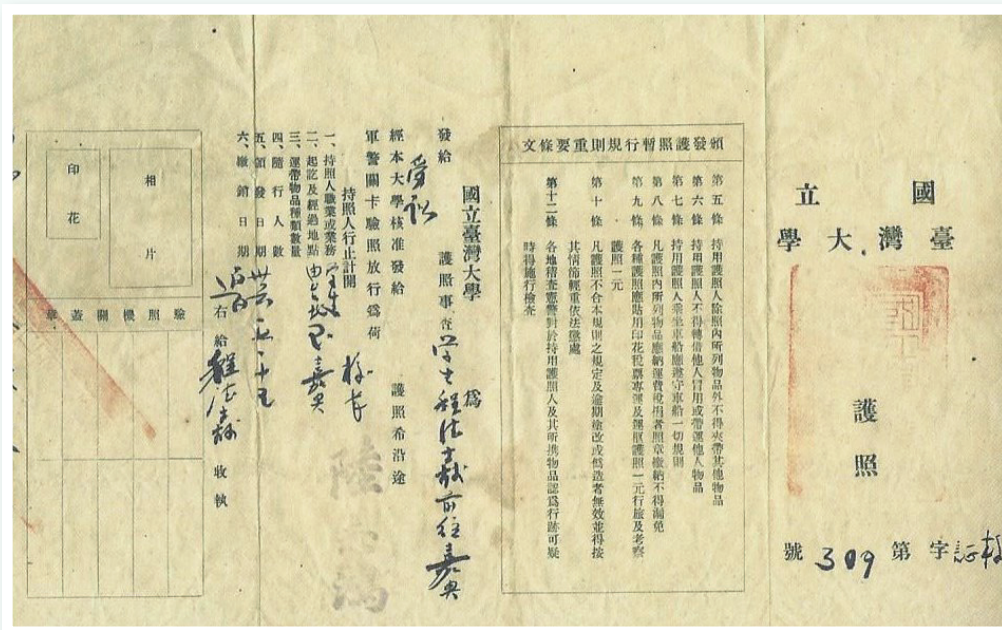 國立
臺灣大學
護照
字第309號
頒發護照暫行規則重要條文
第五條 持用護照人除照內所列物品外不得夾帶其他物品
第六條 持用護照人不得轉借他人冒用或帶運他人物品
第七條 持用護照人乘坐車船應遵守車船一切規則
第八條 凡護照內所列物品應納運費稅捐者照章繳納不得漏免
第九條 各種護照應貼用印花稅票專運及運柩護照一元行旅及考察
護照一元
第十條 凡護照不合本規則之規定及逾期塗改或偽造者無效並得按
其情節輕重依法懲處
第十二條 各地稽查憲警對於持用護照人及其所携物品認爲行跡可疑
時得施行檢查
國立臺灣大學 爲
發給 護照事查學生程法前往嘉
經本大學核准發給 護照希沿途
軍警關卡驗照放行爲荷
持照人行止計開
一、持照人職業或業務 學生
二、起訖及經過地點 由 嘉
三、運帶物品種類數量
四、隨行人數
五、領發日期
六、繳銷日期
右給程法 收執
相片
印花
驗照機關蓋章